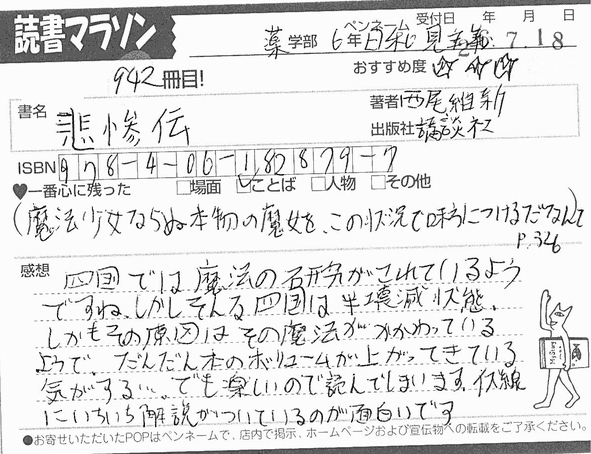 読書マラソン
ペンネーム 受付日 年 月 日
薬学部 6年 日和見主義 7.18
942冊目!
おすすめ度 ☆☆☆
書名 悲惨伝
著者 西尾維新
出版社 講談社
ISBN 978-4-06-182879-7
♥一番心に残った □場面 ☑ことば □人物 □その他
(魔法少女ならぬ本物の魔女を、この状況で味方につけるだなんて
P.326
感想 四国では魔法の研究がされているよう
ですね。しかしそんな四国は半壊滅状態。
しかもその原因はその魔法がかかわっている
ようで、だんだん本のボリュームが上がってきている
気がする…。でも楽しいので読んでしまいます。伏線
にいちいち解説がついているのが面白いです
●お寄せいただいたPOPはペンネームで、店内で掲示、ホームページおよび宣伝物への転載をご了承ください。